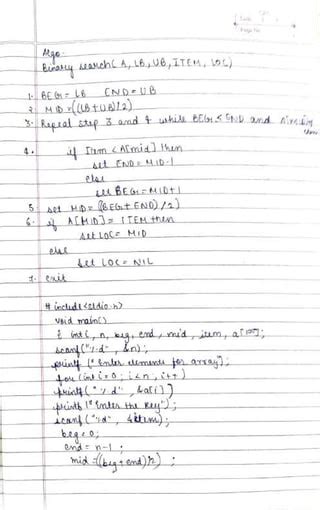 Date
Page No
Algo -
Binary search ( A, LB, UB, ITEM, LOC)
1. BEG = LB END = UB
2. MID = ((LB + UB)/2)
3. Repeat step 3 and 4 while BEG ≤ END and A[mid]≠
item
4. if Item < A[mid] then
set END = MID-1
else
set BEG = MID+1
5. set MID = ((BEG + END)/2)
6. if A[MID] = ITEM then
set LOC = MID
else
set LOC = NIL
7. exit
# include <stdio.h>
void main()
{ int i, n, beg, end, mid, item, a[100];
scanf("%d", &n);
printf ("Enter elements for array);
for (int i=0; i<n; i++)
printf("%d", &a[i])
printf("Enter the Key");
scanf("%d", &item);
beg = 0;
end = n-1;
mid = ((beg + end)/2);